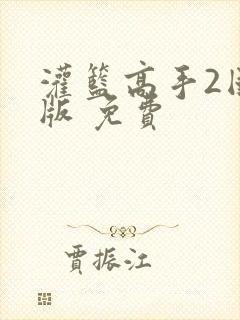 灌籃高手2国
版 免費
賈振江